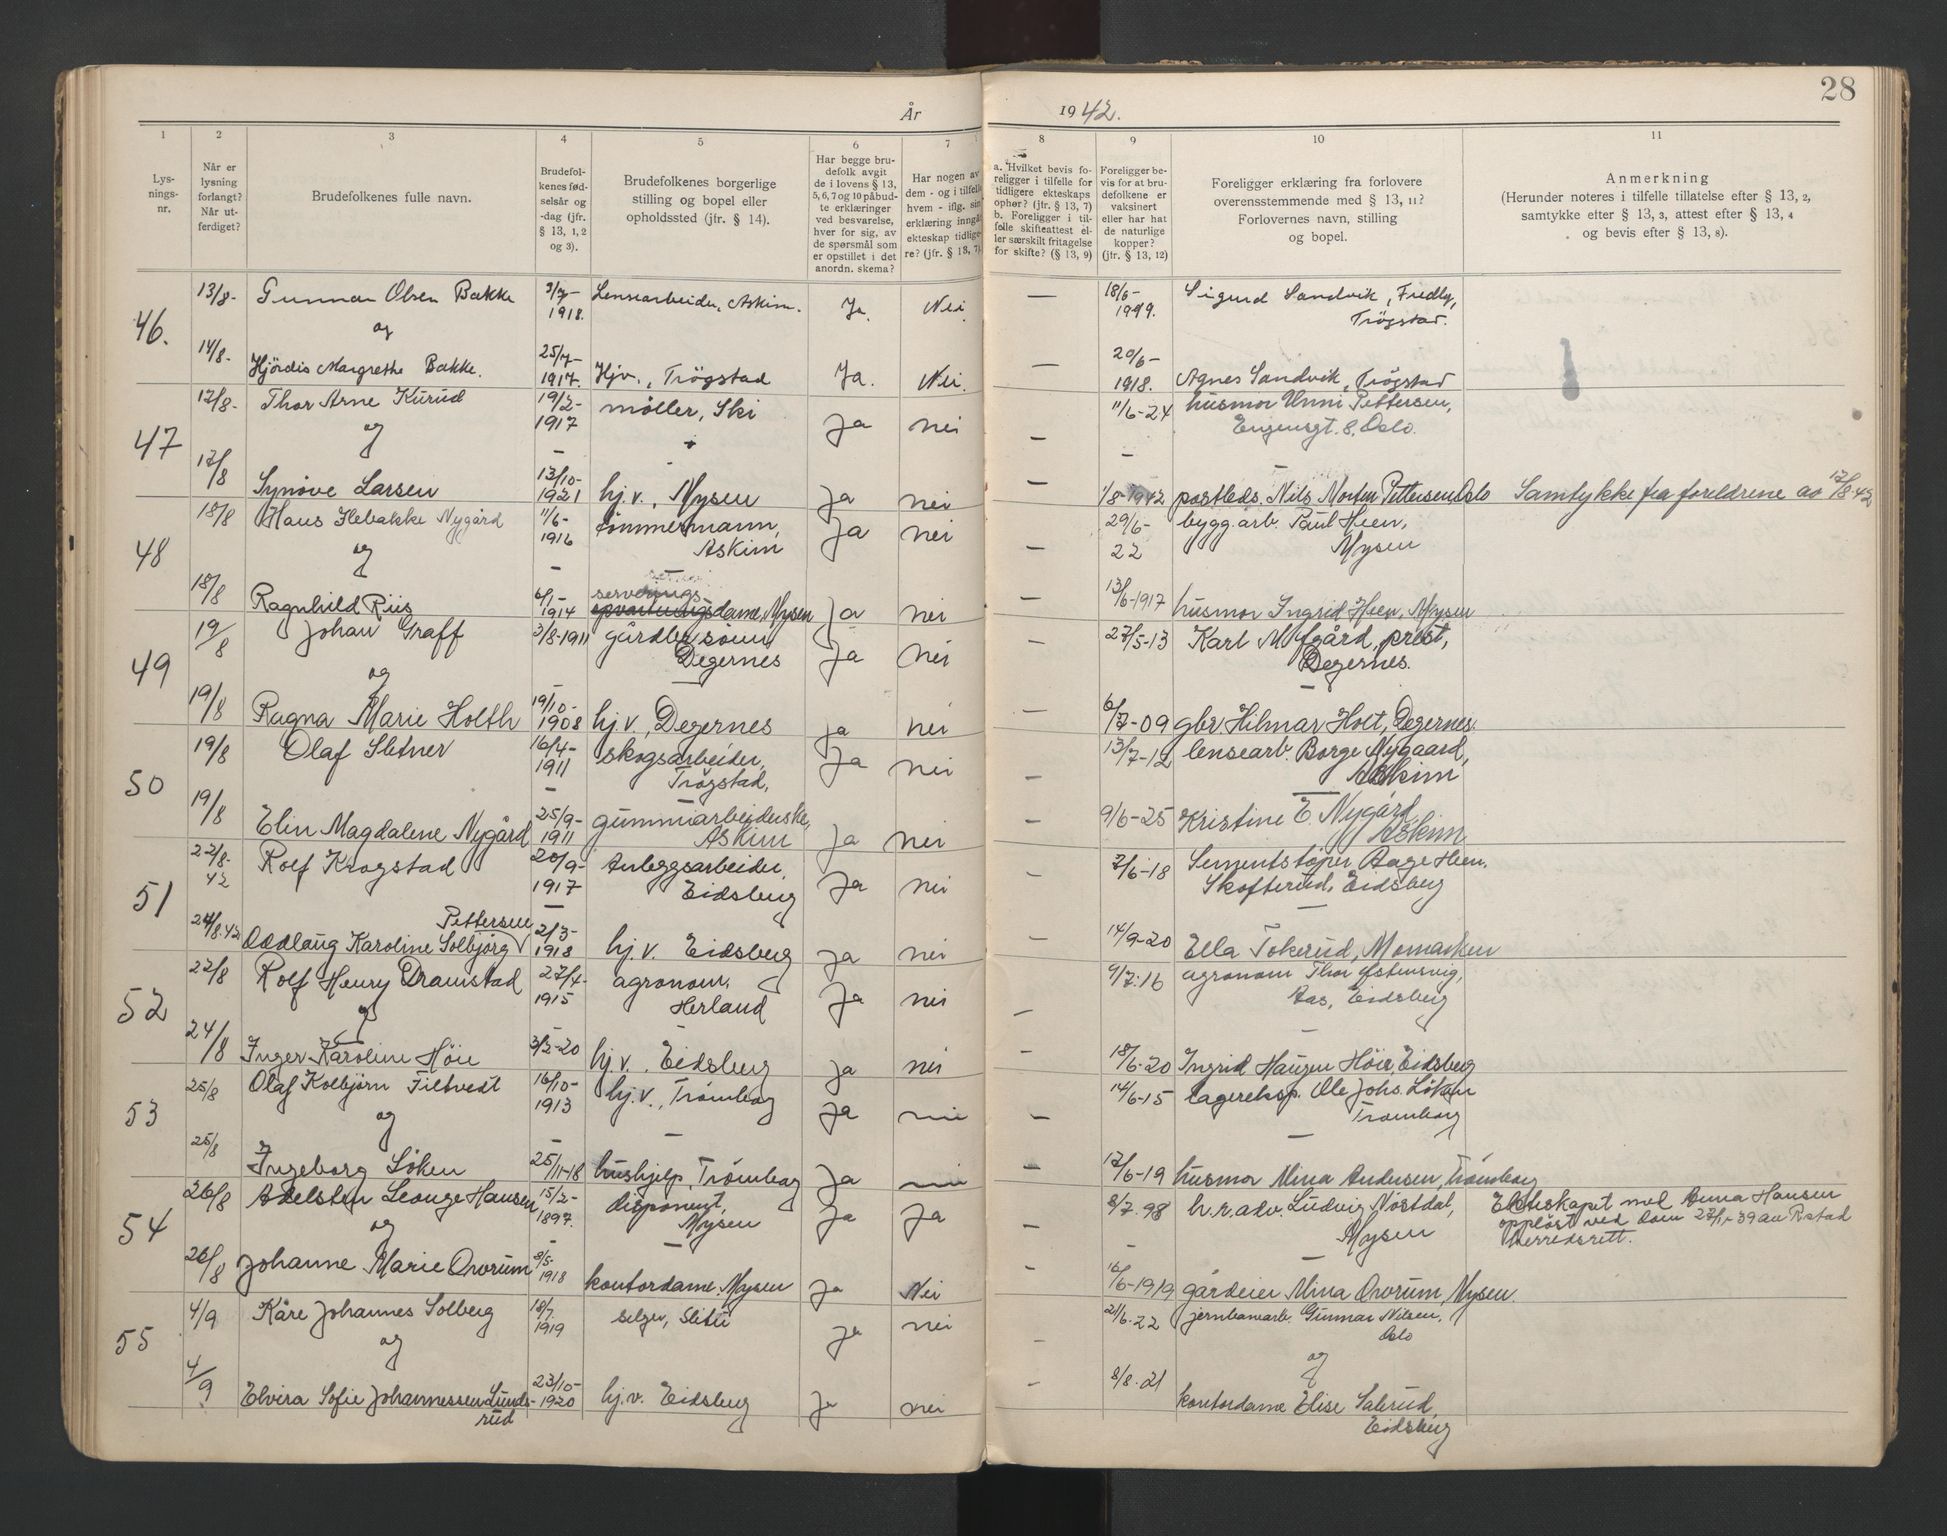 28
År 1942.
1 2 3 4 5 6 7 8 9 10 11
Lysningsnr.
Når er lysning forlangt? Når utferdiget?
Brudefolkenes fulle navn.
Brudefolkenes fødselsår og -dag (jfr. § 13, 1, 2 og 3).
Brudefolkenes borgerlige stilling og bopel eller opholdssted (jfr. § 14).
Har begge brudefolk avgit de i lovens § 13, 5, 6, 7 og 10 påbudte erklæringer ved besvarelse, hver for sig, av de spørsmål som er opstillet i det anordn. skema?
Har nogen av dem - og i tilfelle hvem - iflg. sin erklæring inngått ekteskap tidligere? (jfr. § 13, 7).
a. Hvilket bevis foreligger i tilfelle for tidligere ekteskaps ophør? (jfr. § 13, 7) b. Foreligger i tilfelle skifteattest eller særskilt fritagelse for skifte? (§ 13, 9)
Foreligger bevis for at brudefolkene er vaksinert eller har hat de naturlige kopper? (jfr. § 13, 12)
Foreligger erklæring fra forlovere overensstemmende med § 13, 11? Forlovernes navn, stilling og bopel.
Anmerkning
(Herunder noteres i tilfelle tillatelse efter § 13, 2, samtykke efter § 13, 3, attest efter § 13, 4 og bevis efter § 13, 8).
46. 13/8- Gunnar Olsen Bakke 1918. Lensearbeider, Askim. Ja. Nei. — 18/6- Sigurd Sandvik, Fredly, Trögstad.
og
14/8- Hjördis Margrethe Bakke. 25/7- 1914. Hjv., Trögstad Ja. Nei. — 20/6- 1918. Agnes Sandvik, Trögstad
47 12/8- Thor Arne Kurud 19/2- 1917 möller, Ski Ja nei — 11/6-24 husmor Unni Pettersen, Eugensgt. 8, Oslo.
og
12/8 Synöve Larsen 13/10- 1921 hj.v., Mysen Ja nei — 1/8-1942 postbds. Nils Morten Pettersen, Oslo Samtykke fra foreldrene av 12/8-42
48 18/8 Hans Hebakke Nygård 11/6- 1916 tömmermann, Askim Ja nei — 29/6- 22 bygg.arb. Paul Heen, Mysen
og
18/8 Ragnhild Riis 6/1- 1914 serveringsdame, Mysen Ja nei — 13/6-1917 husmor Ingrid Heen, Mysen
49 19/8 Johan Graff 3/8-1911 Degernes Ja nei 27/5-13 Karl Mofgård, prest, Degernes.
og
19/8 Ragna Marie Holth 19/10- 1908 hj.v., Degernes ja nei 6/7-09 gbr Hilmar Holt, Degernes.
50 19/8 Olaf Sletner 16/4- 1911 skogsarbeider, Trögstad, Ja nei — 13/7-12 lensearb. Borge Nygaard, Askim
19/8 Elin Magdalene Nygård 25/9- 1911 gummiarbeiderske, Askim Ja nei — 9/6-25 Kristine E. Nygård, Askim
51 22/8-42 Rolf Krogstad 20/9- 1917 Anleggsarbeider, Eidsberg Ja nei — 7/6-18 Sementstöper Aage Heen, Skofterud, Eidsberg
24/8.42 Oddlaug Karoline Solbjörg Pettersen 2/3- 1918 hj.v. Eidsberg Ja nei — 14/9-20 Ella Tokerud, Momarken
52 22/8 Rolf Henry Dramstad 27/4- 1915 agronom, Herland Ja nei — 9/7.16 agronom Thor Östensvig, Aas, Eidsberg
og
24/8 Inger Karoline Höie 3/2-20 hj.v., Eidsberg Ja nei — 18/6-20 Ingrid Haugen Höie, Eidsberg
53 25/8 Olaf Kolbjörn Filtvedt 16/10- 1913 hj.v., Trömborg Ja nei — 14/6-15 lagereksp. Ole Johs. Löken Trömborg
og
25/8 Ingeborg Löken 25/11-18 hushjelp, Trömborg Ja nei — 12/6-19 husmor Mina Andersen, Trömborg
54 26/8 Adelsten Leonge Hansen 15/2- 1897. disponent, Mysen Ja Ja — 8/7.98 h.r.adv. Ludvig Nöstdal, Mysen Ekteskapet med Anna Hansen opplöst ved Dom 27/1-39 av R.stad herredsrett.
og
26/8 Johanne Marie Ovorum 8/5- 1918 kontordame, Mysen Ja Nei — 16/6-1919 gårdeier Mina Ovorum, Mysen.
55 4/9 Kåre Johannes Solberg 18/7. 1919 selger, Slitu Ja nei — 21/6.22 jernbanearb. Gunnar Nilsen, Oslo
og og
4/9 Elvira Sofie Johannessen Lundsrud 23/10- 1920 hj.v. Eidsberg Ja nei — 8/8.21 kontordame Elise Saterud, Eidsberg